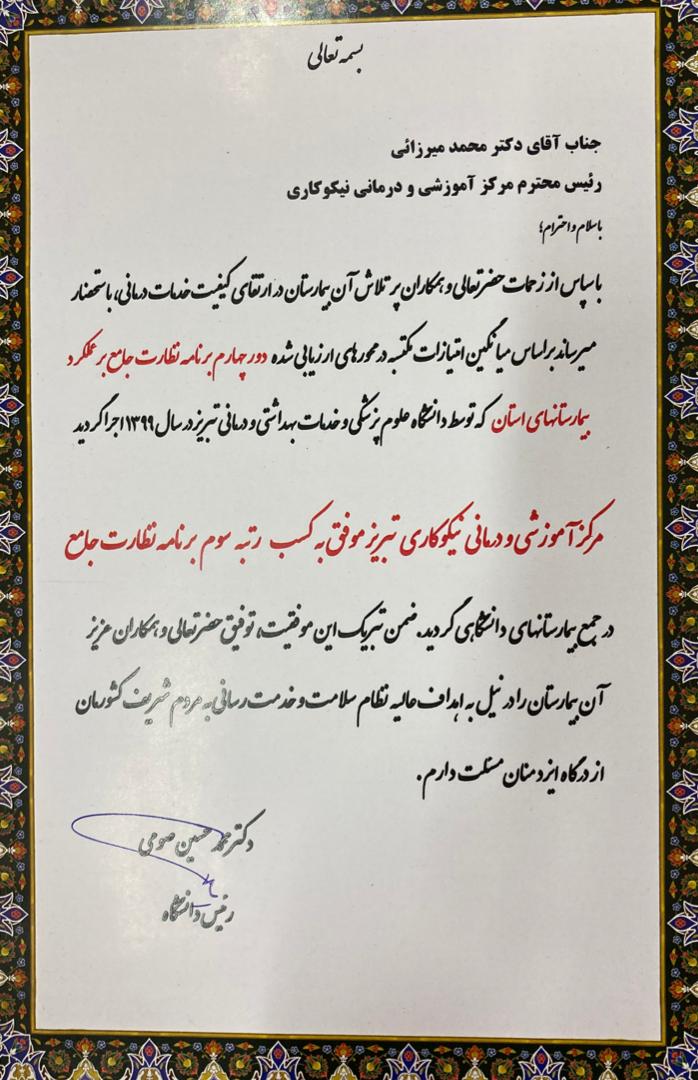 بسمه تعالی
جناب آقای دکتر محمد میرزائی
رئیس محترم مرکز آموزشی و درمانی نیکوکاری
باسلام و احترام؛
با سپاس از زحمات حضرتعالی و همکاران پر تلاش آن بیمارستان در ارتقای کیفیت خدمات درمانی، باستحضار
میرساند براساس میانگین امتیازات مکتسبه در محورهای ارزیابی شده دور چهارم برنامه نظارت جامع بر عملکرد
بیمارستانهای استان که توسط دانشگاه علوم پزشکی و خدمات بهداشتی و درمانی تبریز در سال ۱۳۹۹ اجرا گردید
مرکز آموزشی و درمانی نیکوکاری تبریز موفق به کسب رتبه سوم برنامه نظارت جامع
در جمع بیمارستانهای دانشگاهی گردید. ضمن تبریک این موفقیت، توفیق حضرتعالی و همکاران عزیز
آن بیمارستان را در نیل به اهداف عالیه نظام سلامت و خدمت رسانی به مردم شریف کشورمان
از درگاه ایزد منان مسئلت دارم.
دکتر محمد حسین صومی
رئیس دانشگاه